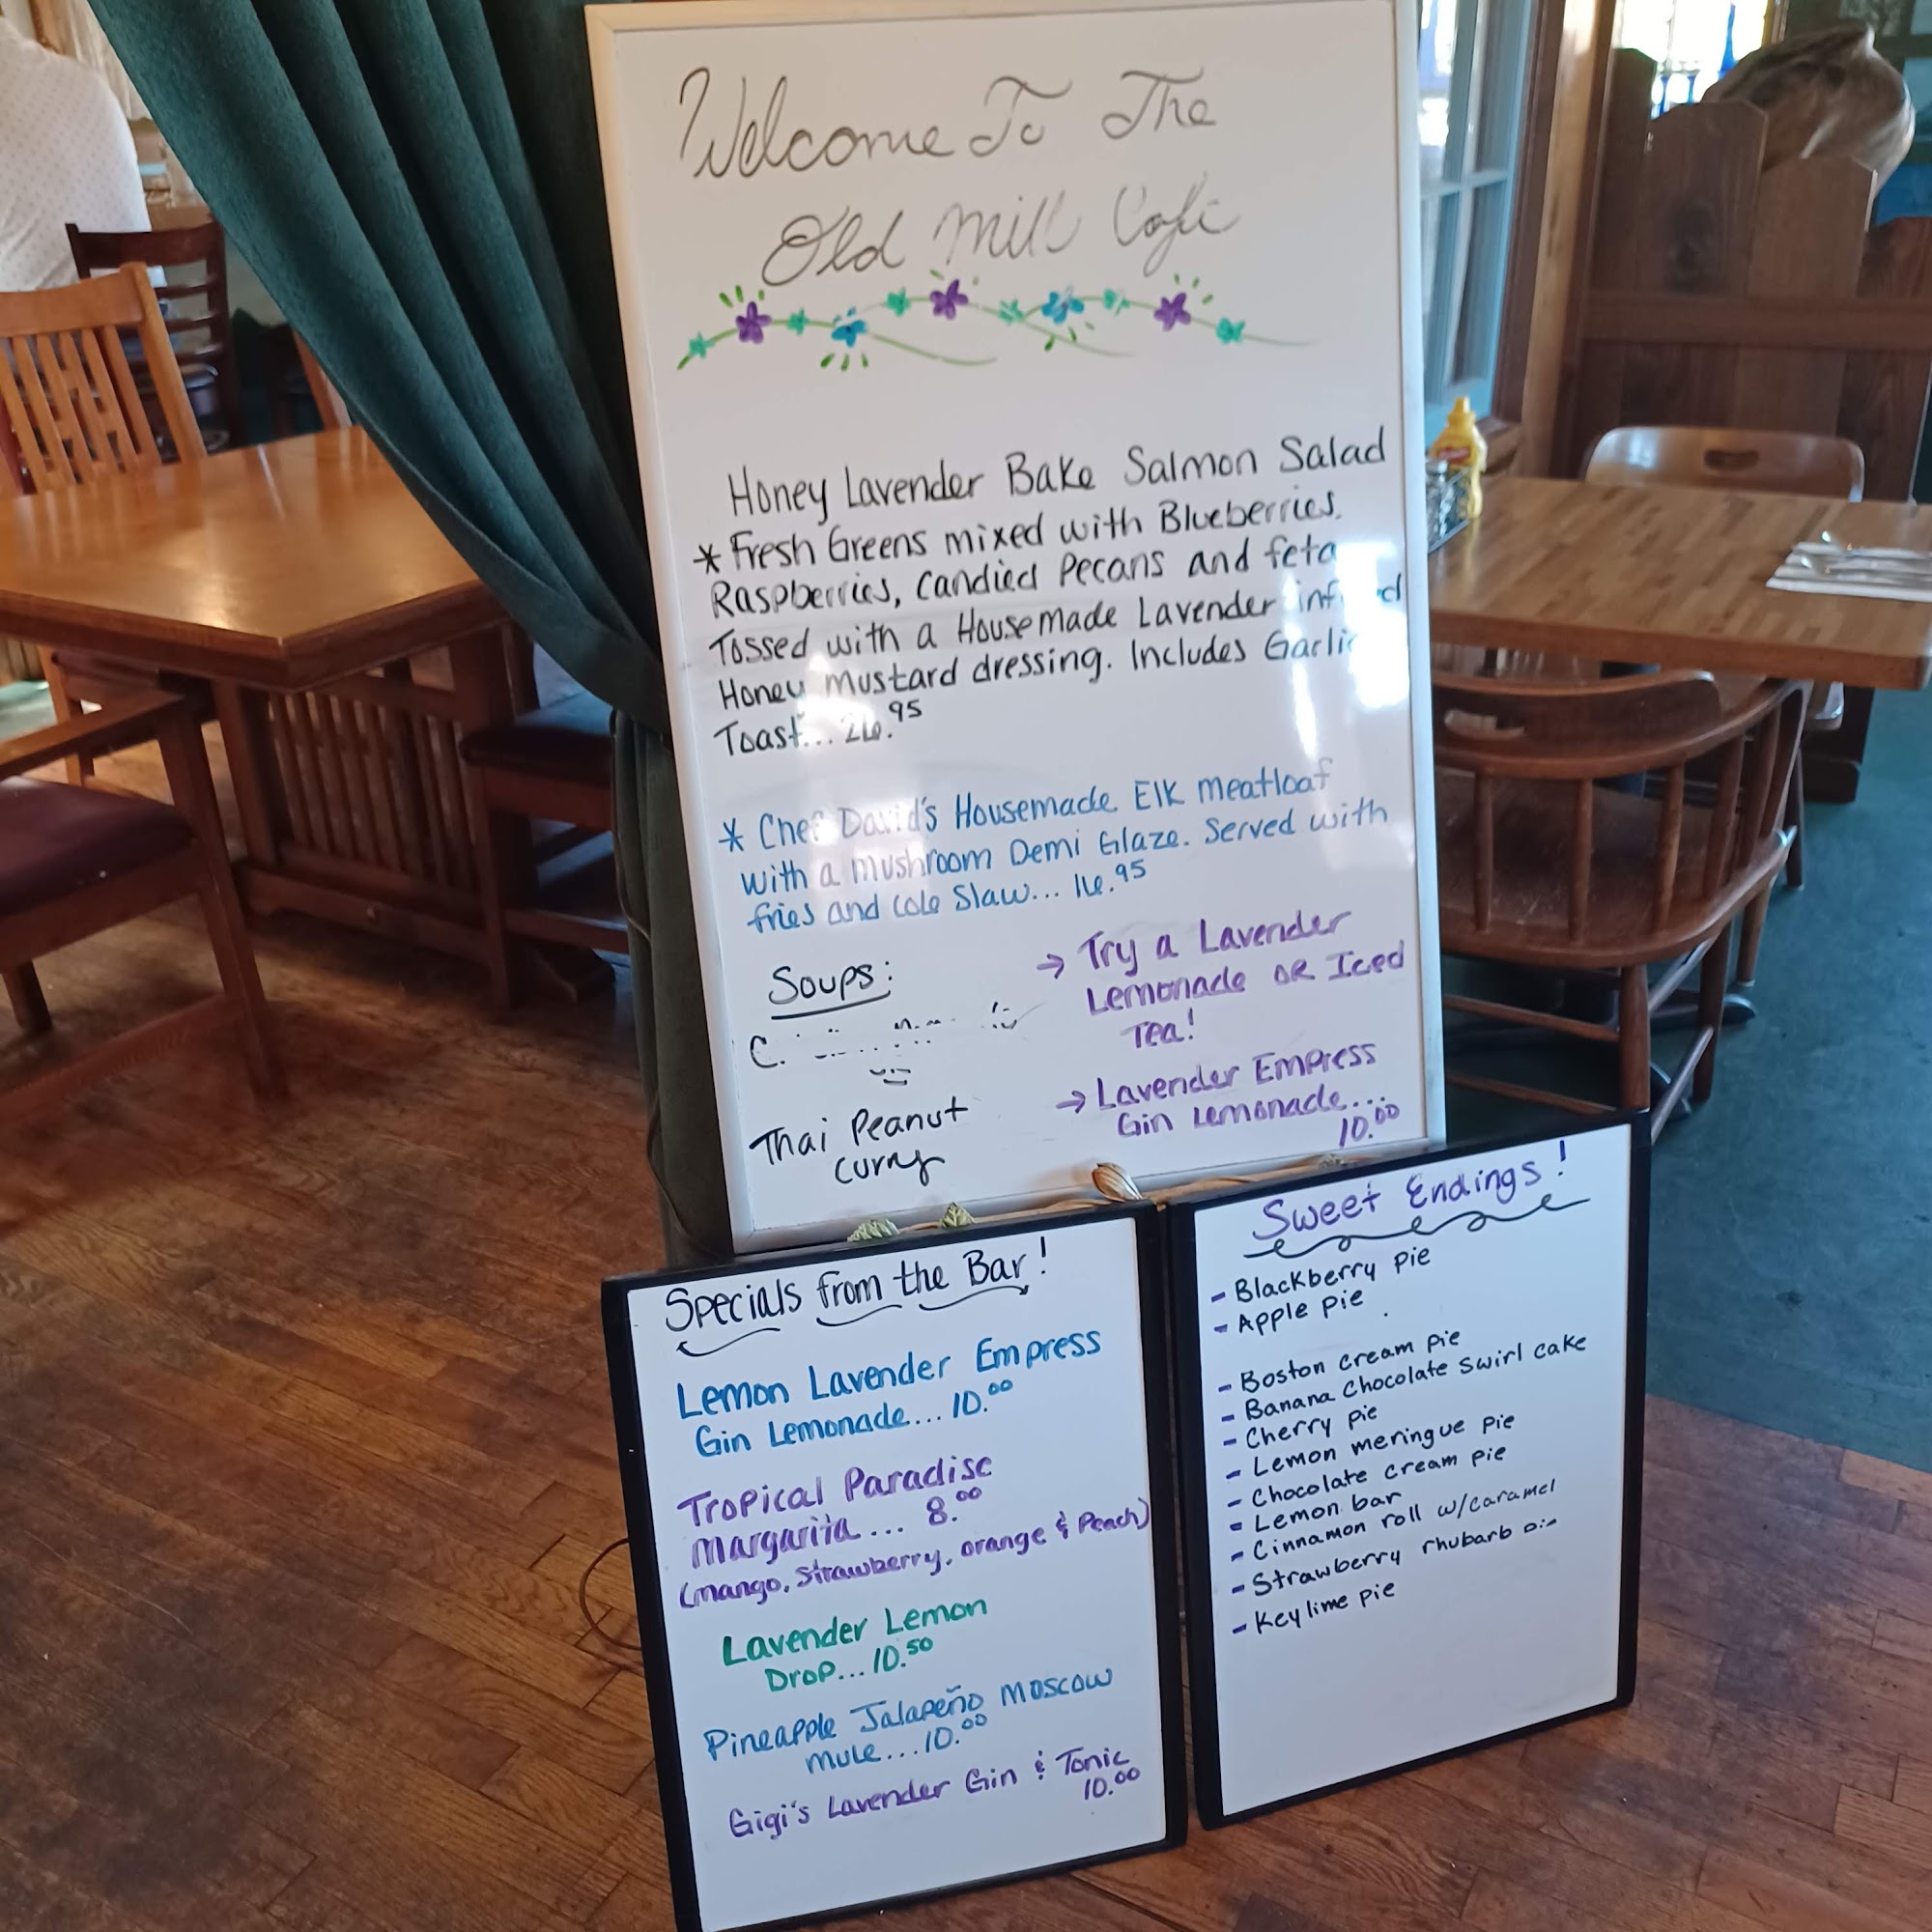 Welcome To The
Old Mill Cafe
Honey Lavender Bake Salmon Salad
* Fresh Greens mixed with Blueberries.
Raspberries, Candied Pecans and feta
Tossed with a Housemade Lavender
Honey Mustard dressing. Includes Garlic
Toast... 26.95
* Chef David's Housemade Elk meatloaf
with a mushroom Demi Glaze. Served with
fries and Cole Slaw... 16.95
Soups:
Thai Peanut
Curry
→ Try a Lavender
Lemonade OR Iced
Tea!
→ Lavender Empress
Gin Lemonade...
10.00
Specials from the Bar!
Lemon Lavender Empress
Gin Lemonade.... 10.00
Tropical Paradise
Margarita... 8.00
(mango, Strawberry, orange & Peach)
Lavender Lemon
Drop... 10.50
Pineapple Jalapeño Moscow
mule... 10.00
Gigi's Lavender Gin & Tonic
10.00
Sweet Endings!
- Blackberry pie
- Apple pie
- Boston cream pie
- Banana Chocolate swirl cake
- Cherry pie
- Lemon meringue pie
- Chocolate cream pie
- Lemon bar
- Cinnamon roll w/caramel
- Strawberry rhubarb
- Key lime pie